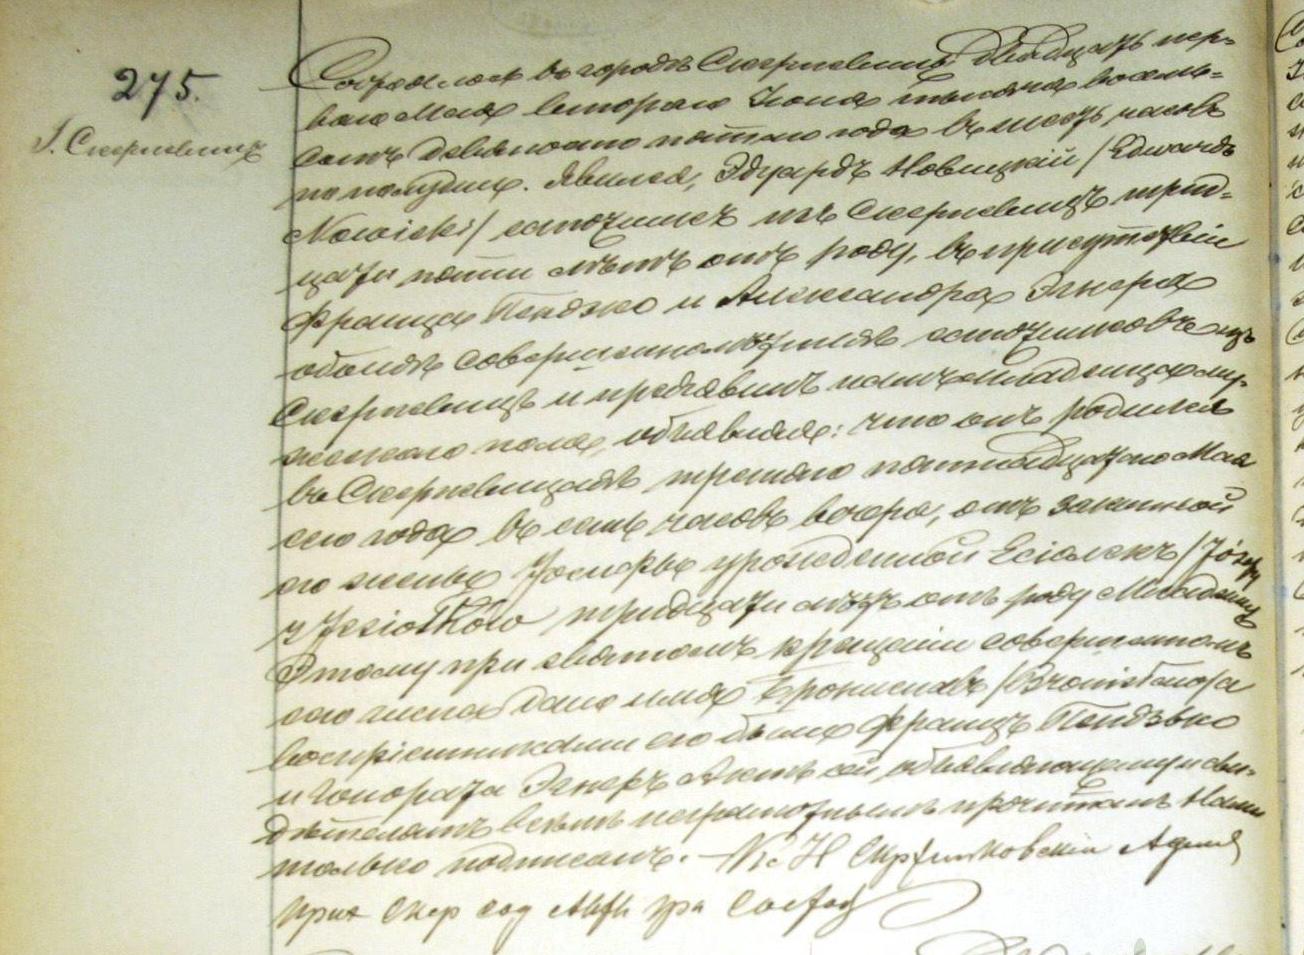 275.
Г. Скерневицы
Состоялось въ городѣ Скерневицы двадцать пер-
ваго Мая второго Iюня тысяча восемь-
сотъ девяносто пятаго года въ шесть часовъ
по полудни. Явился, Эдуардъ Новицкiй /Edward
Nowicki/ есточникъ изъ Скерневицъ трид-
цати пяти лѣтъ отъ роду, въ присутствiи
Франца Пендзко и Александра Эгнера
обоихъ совершеннолѣтнихъ есточниковъ изъ
Скерневицъ и предъявилъ намъ младенца му-
жескаго пола, объявляя: что онъ родился
въ Скерневицахъ третьяго пятнадцатаго Мая
сего года въ семь часовъ вечера, отъ законной
его жены Iосифы урожденной Есiолекъ /Józefy
z Jesiołków тридцати лѣтъ отъ роду Младенцу
этому при святомъ крещенiи совершенномъ
сего числа дано имя Брониславъ /Bronisława
воспрiемниками его были Францъ Пендзько
и Гонората Эгнеръ Актъ сей, объявляющему и сви-
дѣтелямъ всѣмъ неграмотнымъ прочитанъ Нами
только подписанъ.